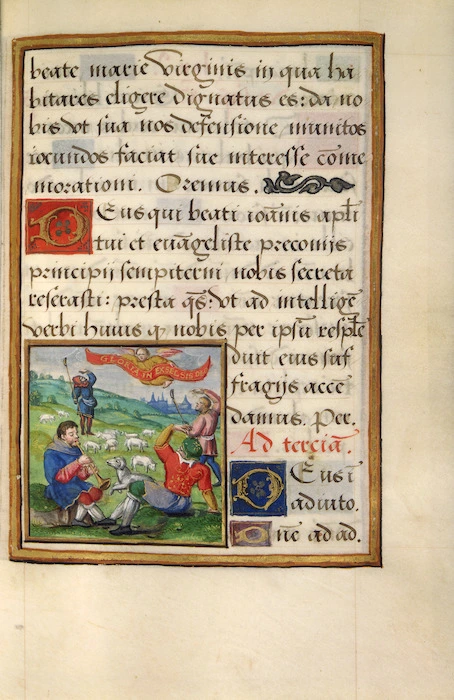 beate marie virginis in qua ha
bitares eligere dignatus es: da no
bis vt sua nos defensione munitos
iocundos faciat sue interesse co᷉me
morationi. Oremus.
Deus qui beati ioānis apl̄i
tui et euāgeliste preconijs
principij sempiterni nobis secreta
reserasti: presta qs̄: vt ad intelligē
verbi huius q nobis per ipsū resplē
duit eius suf
fragijs acce
damus. Per.
Ad terciā.
Deus ī
adiuto.
Dn̄e ad ad.
GLORIA IN EXSELSIS DEO